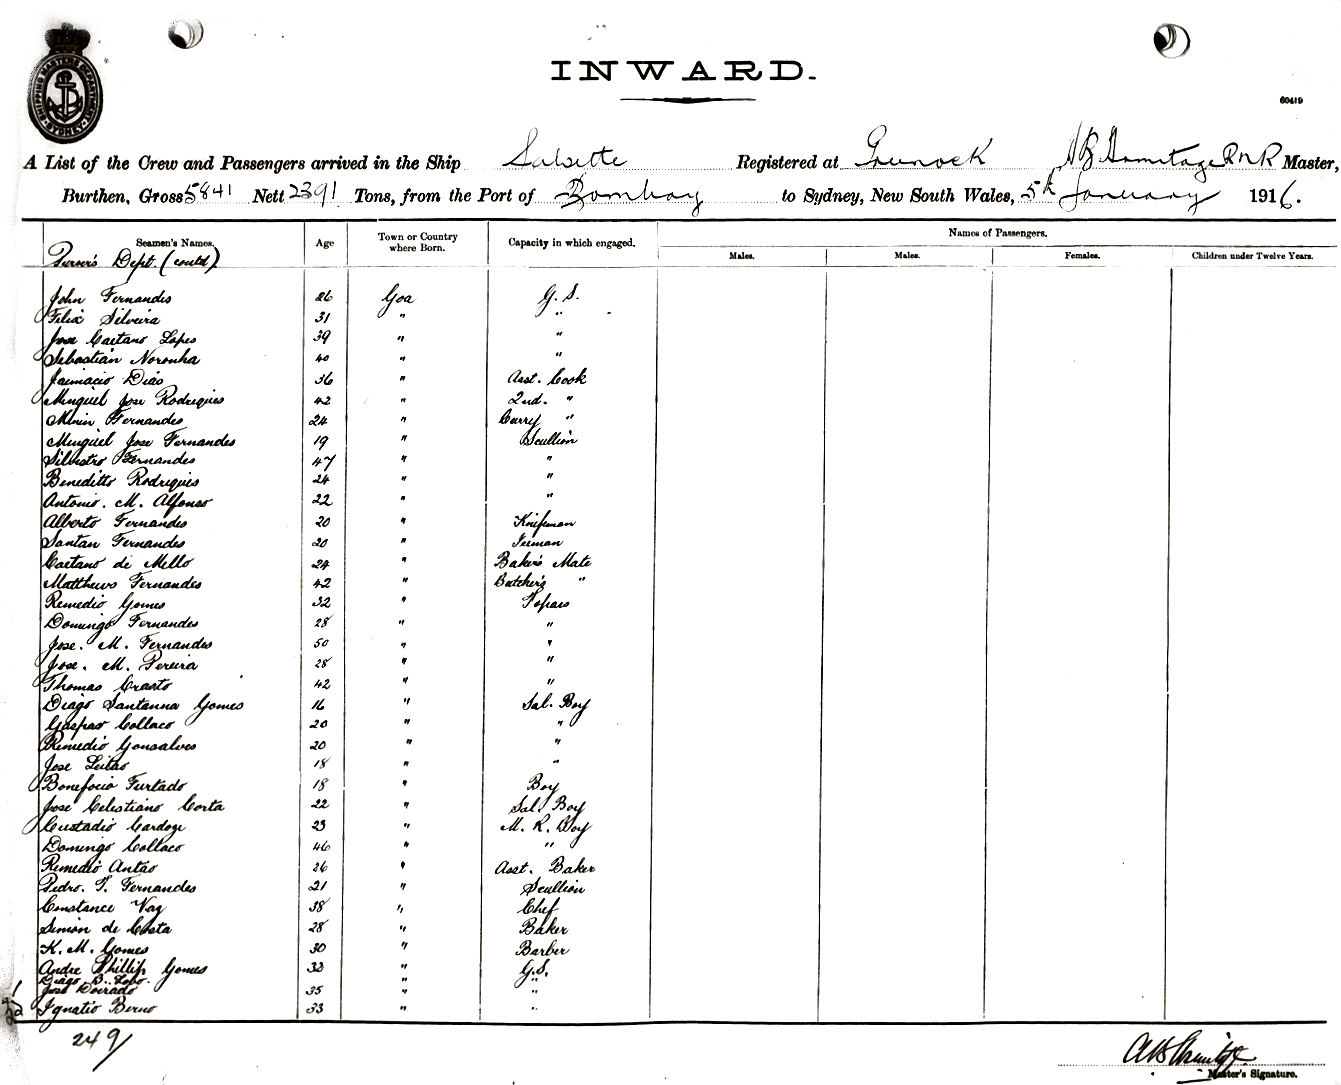 INWARD.
60419
SHIPPING MASTER'S DEPARTMENT SYDNEY
A List of the Crew and Passengers arrived in the Ship Salsette Registered at Greenock A B Armitage R N R Master,
Burthen, Gross 5841 Nett 2391 Tons, from the Port of Bombay to Sydney, New South Wales, 5th January 1916.
Seamen's Names. Age Town or Country where Born. Capacity in which engaged. Names of Passengers.
Males. Males. Females. Children under Twelve Years.
Purser's Dept. (contd)
John Fernandes 26 Goa G. S.
Felix Silveira 31 " "
Jose Caetano Lopes 39 " "
Sebastian Noronha 40 " "
Dias 36 " Asst. Cook
Minguel Jose Rodrigues 42 " 2nd. "
Minin Fernandes 24 " Curry "
Minguel Jose Fernandes 19 " Scullion
Silvestro Fernandes 47 " "
Beneditto Rodrigues 24 " "
Antonio. M. Alfonso 22 " "
Alberto Fernandes 20 " Knifeman
Santan Fernandes 20 "
Caetano de Mello 24 " Baker's Mate
Matthews Fernandes 42 " Butcher's "
Remedio Gomes 32 " Topass
Domingo Fernandes 28 " "
Jose. M. Fernandes 50 " "
Jose. M. Pereira 28 " "
Thomas Crasto 42 " "
Diago Santanna Gomes 16 " Sal. Boy
Gaspar Collaco 20 " "
Remedio Gonsalves 20 " "
Jose Leitao 18 " "
Bonefocio Furtado 18 " Boy
Jose Celestiano Corta 22 " Sal. Boy
Custadio Cardoze 23 " M. R. Boy
Domingo Collaco 46 " "
Remedio Antao 26 " Asst. Baker
Pedro. F. Fernandes 21 " Scullion
Constance Vaz 38 " Chef
Simon de Costa 28 " Baker
K. M. Gomes 30 " Barber
Andre Phillip Gomes 32 " G.S.
Diago B. Lobo. " "
Jose Dourado 35 " "
Ignatio Berno 33 " "
249/
Master's Signature.